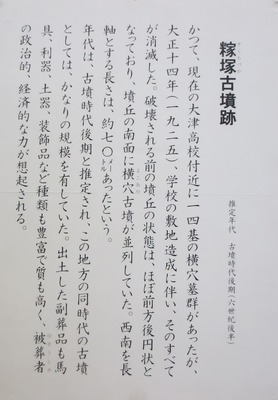 糘塚古墳跡
推定年代 古墳時代後期(六世紀後半)
かつて、現在の大津高校付近に一四基の横穴墓群があったが、
大正十四年(一九二五)、学校の敷地造成に伴い、そのすべて
が消滅した。破壊される前の墳丘の状態は、ほぼ前方後円状と
なっており、墳丘の南面に横穴古墳が並列していた。西南を長
軸とする長さは、約七〇㍍あったという。
年代は、古墳時代後期と推定され、この地方の同時代の古墳
としては、かなりの規模を有していた。出土した副葬品も馬
具、利器、土器、装飾品など種類も豊富で質も高く、被葬者
の政治的、経済的な力が想起される。